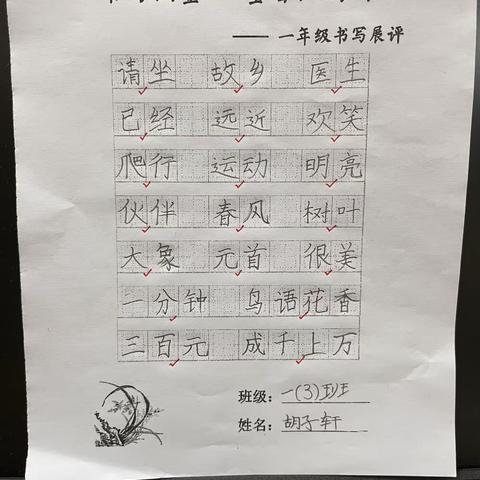 —— 一年级书写展评
请坐 故乡 医生
已经 远近 欢笑
爬行 运动 明亮
伙伴 春风 树叶
大象 元首 很美
一分钟 鸟语花香
三百元 成千上万
班级：一(3)班
姓名：胡子轩